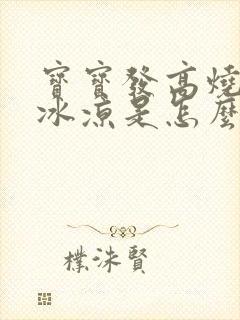 寶寶發高燒
冰涼是怎麼
樸洙賢